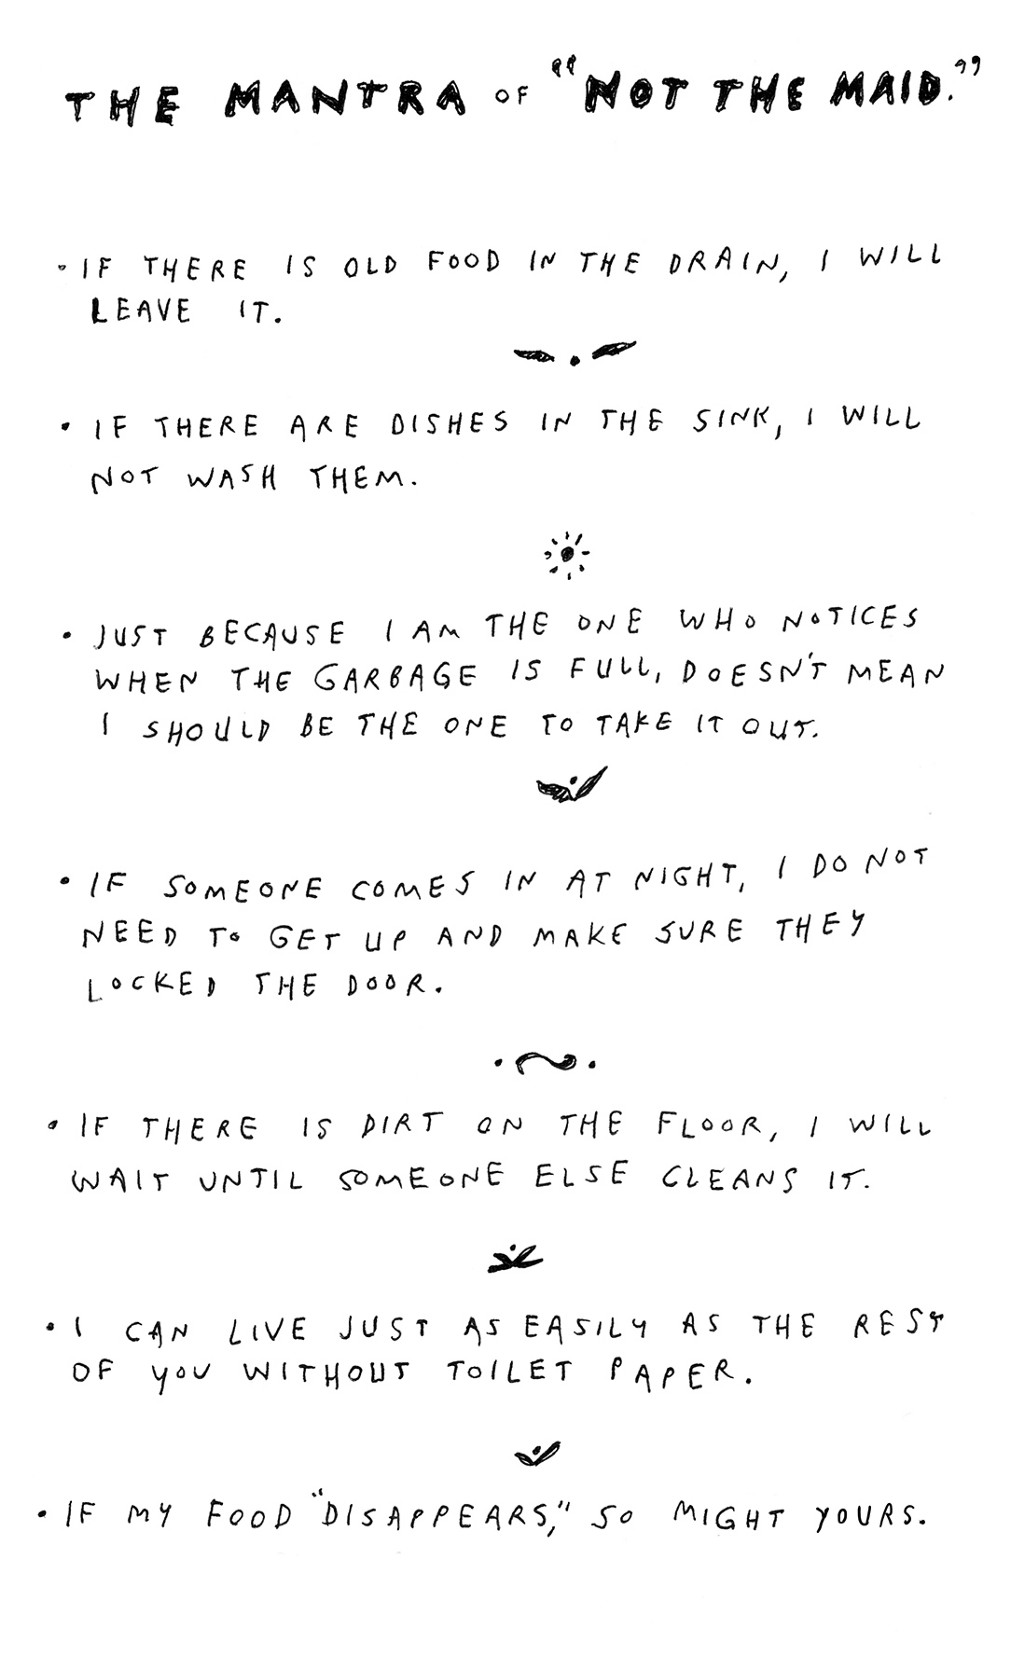 THE MANTRA OF "NOT THE MAID."
• IF THERE IS OLD FOOD IN THE DRAIN, I WILL
LEAVE IT.
• IF THERE ARE DISHES IN THE SINK, I WILL
NOT WASH THEM.
• JUST BECAUSE I AM THE ONE WHO NOTICES
WHEN THE GARBAGE IS FULL, DOESN'T MEAN
I SHOULD BE THE ONE TO TAKE IT OUT.
• IF SOMEONE COMES IN AT NIGHT, I DO NOT
NEED TO GET UP AND MAKE SURE THEY
LOCKED THE DOOR.
• IF THERE IS DIRT ON THE FLOOR, I WILL
WAIT UNTIL SOMEONE ELSE CLEANS IT.
• I CAN LIVE JUST AS EASILY AS THE REST
OF YOU WITHOUT TOILET PAPER.
• IF MY FOOD "DISAPPEARS," SO MIGHT YOURS.